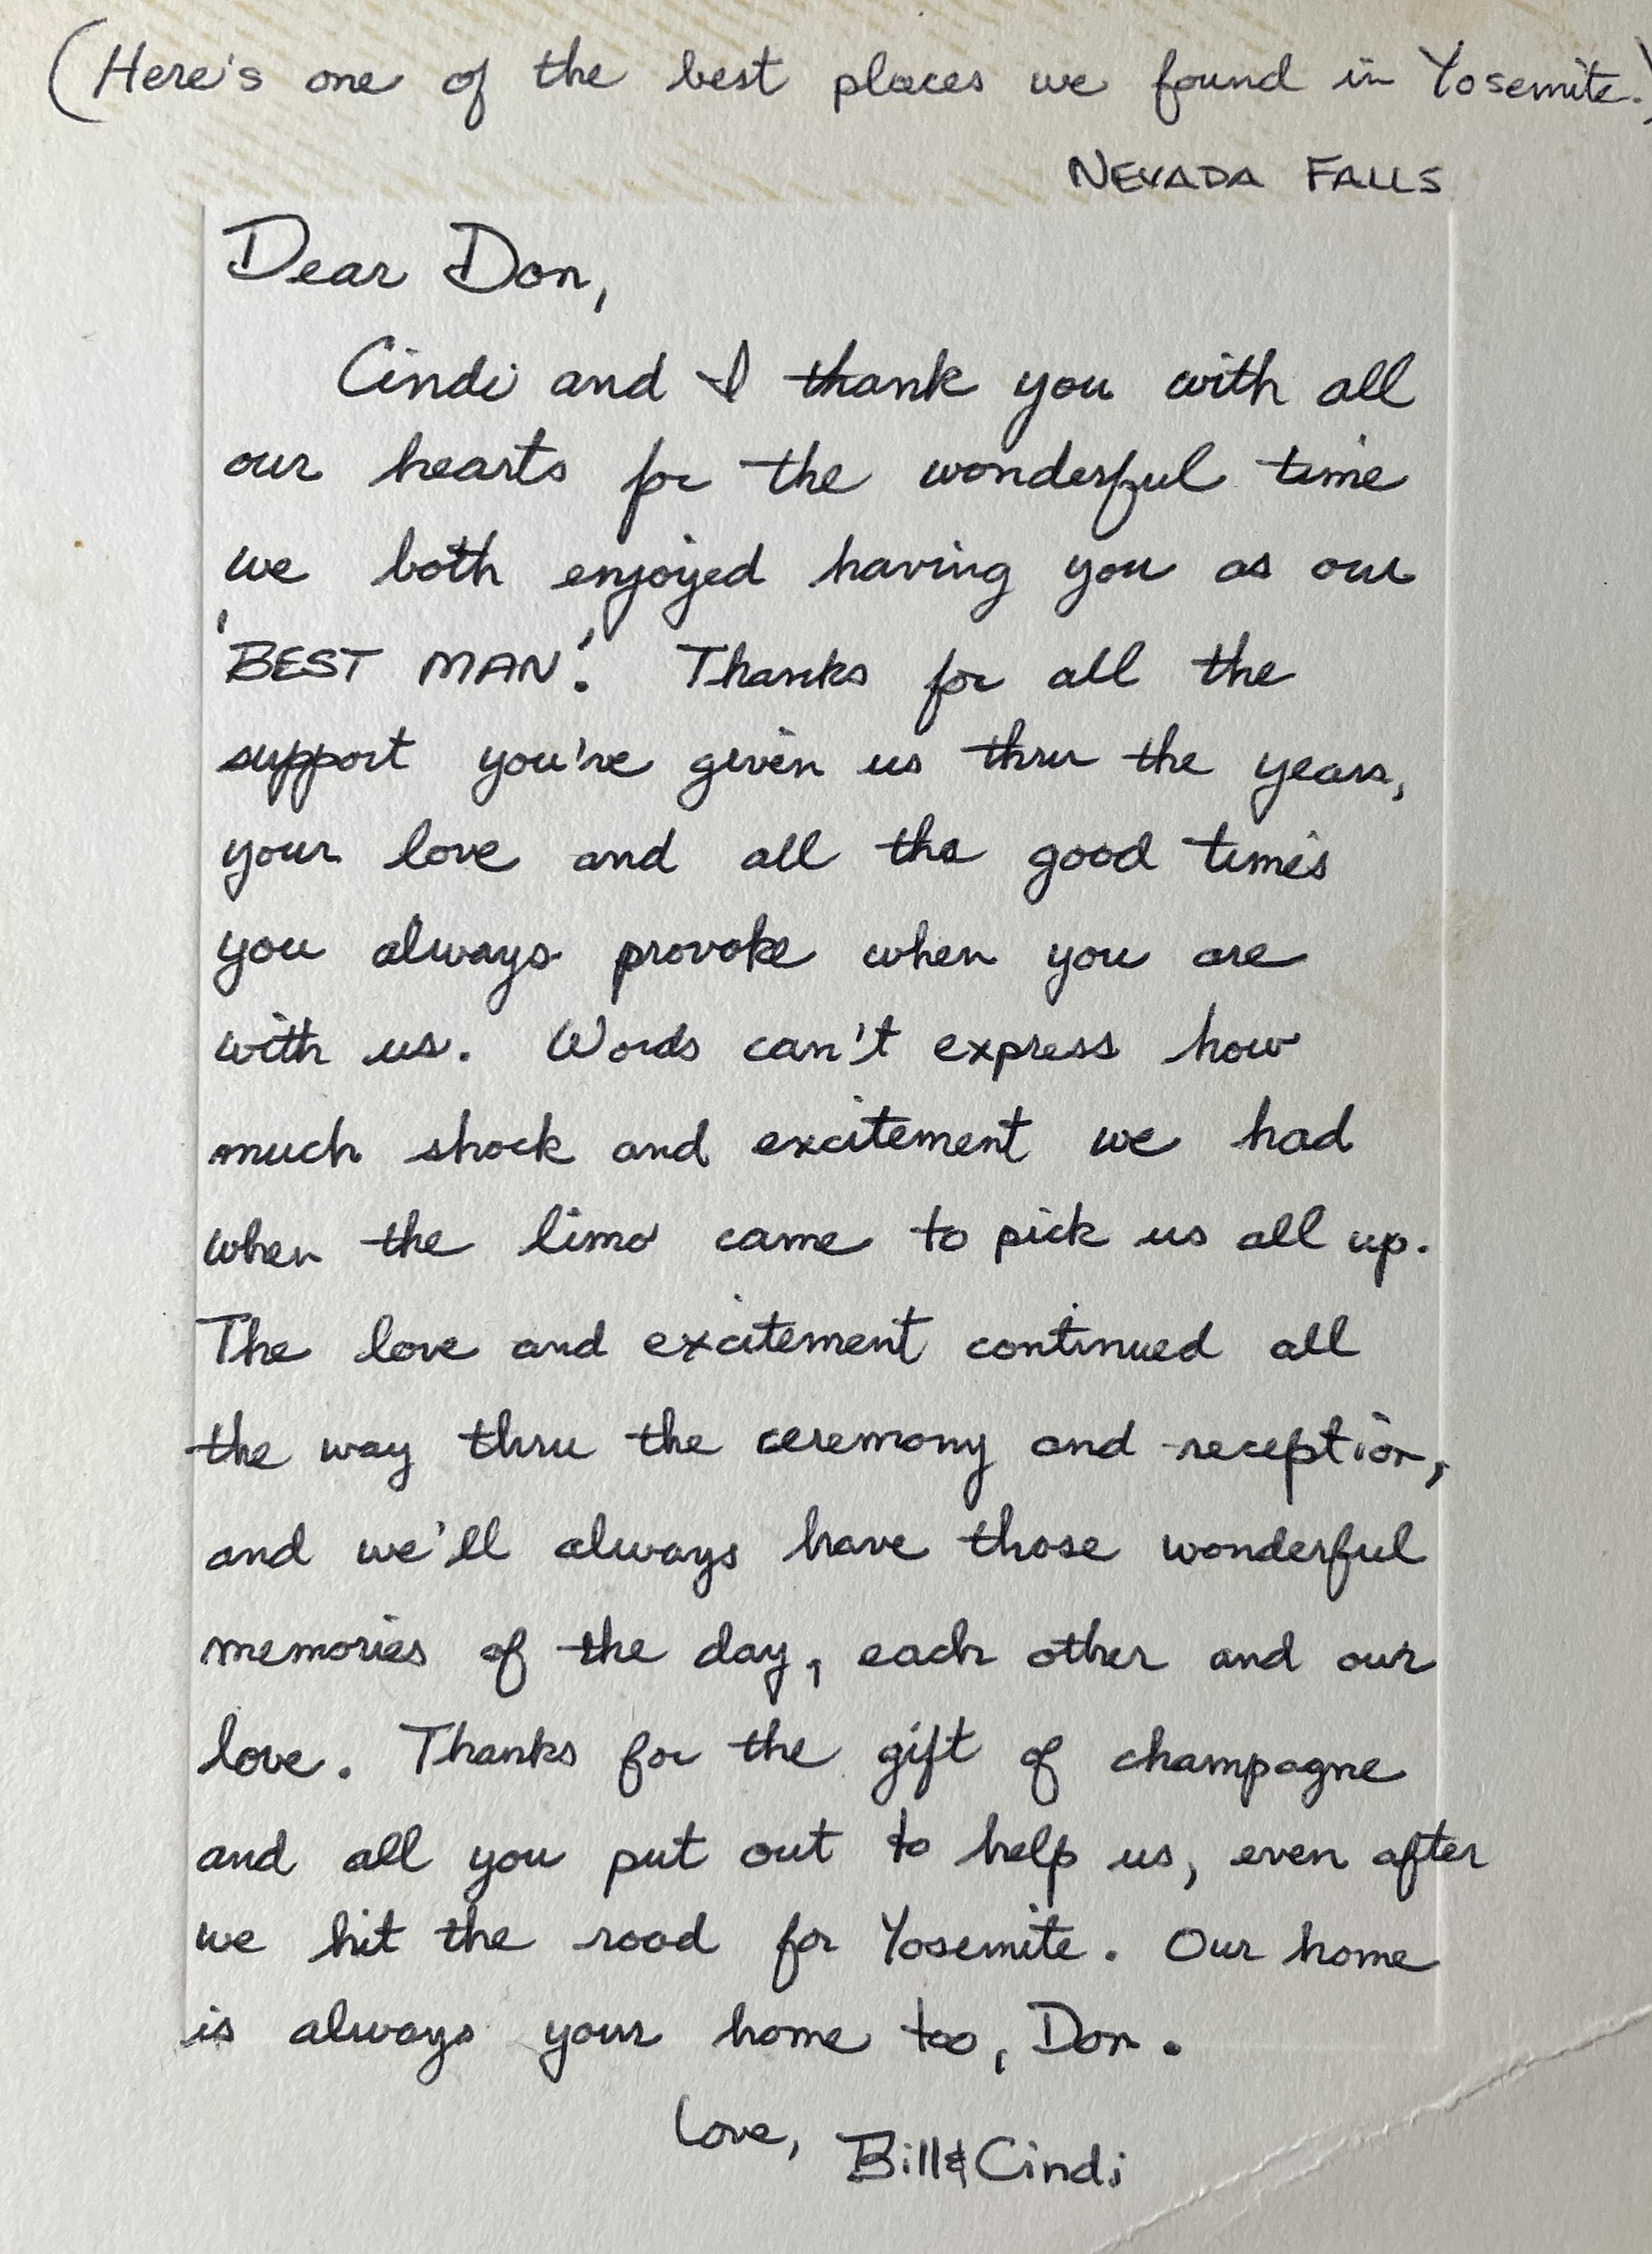 (Here's one of the best places we found in Yosemite.)
NEVADA FALLS
Dear Don,
Cindi and I thank you with all
our hearts for the wonderful time
we both enjoyed having you as our
'BEST MAN'. Thanks for all the
support you've given us thru the years,
your love and all the good times
you always provoke when you are
with us. Words can't express how
much shock and excitement we had
when the limo came to pick us all up.
The love and excitement continued all
the way thru the ceremony and reception,
and we'll always have those wonderful
memories of the day, each other and our
love. Thanks for the gift of champagne
and all you put out to help us, even after
we hit the road for Yosemite. Our home
is always your home too, Don.
Love, Bill & Cindi